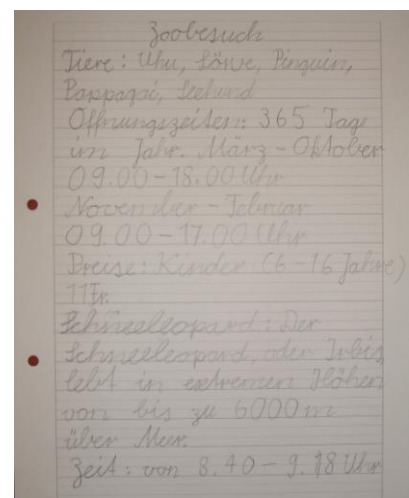 Zoobesuch
Tiere: Uhu, Löwe, Pinguin,
Pappagai, Seehund
Öffnungszeiten: 365 Tage
im Jahr. März - Oktober
09.00 - 18.00 Uhr
November - Februar
09.00 - 17.00 Uhr
Preise: Kinder (6 - 16 Jahre)
11Fr.
Schneeleopard: Der
Schneeleopard, oder Irbis,
lebt in extremen Höhen
von bis zu 6000 m
über Meer.
Zeit: von 8.40 - 9.18 Uhr